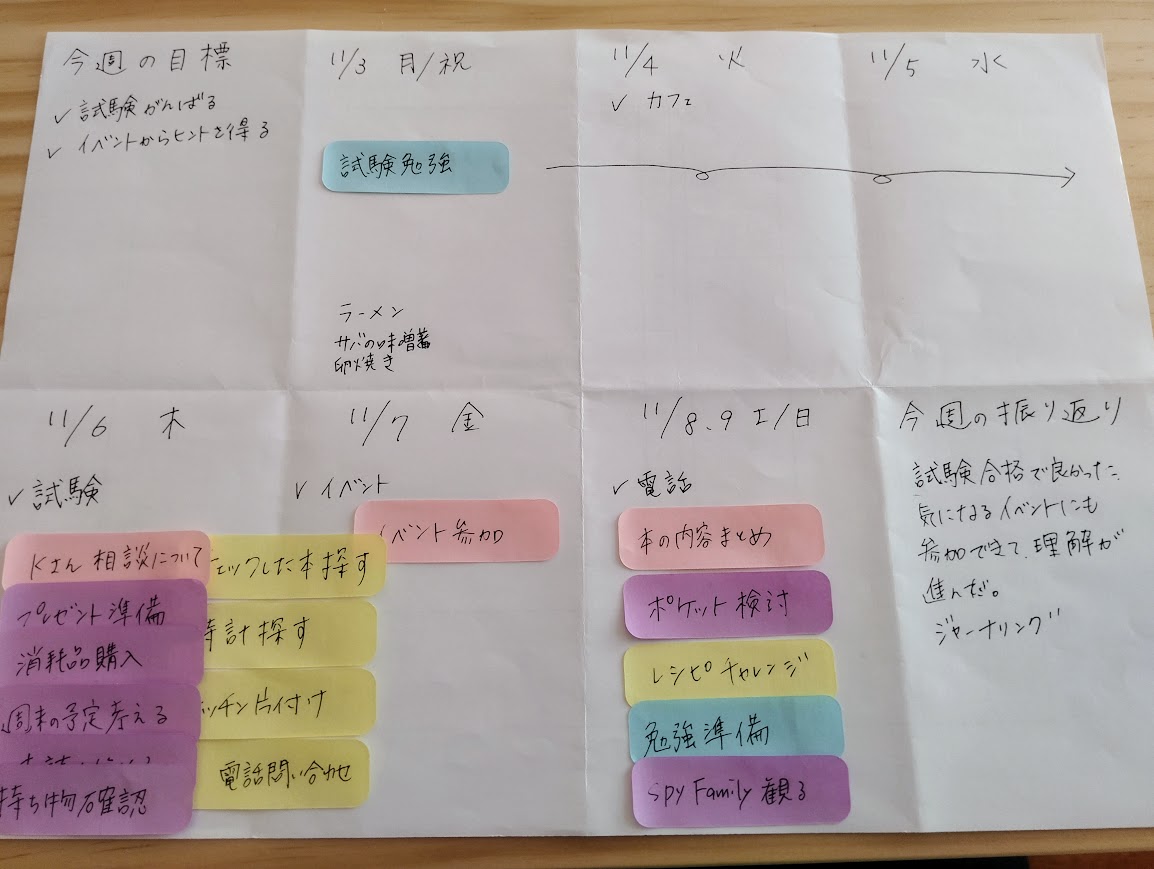 今週の目標
✓ 試験がんばる
✓ イベントからヒントを得る
11/3 月/祝
試験勉強
ラーメン
サバの味噌煮
卵焼き
11/4 火
✓ カフェ
11/5 水
11/6 木
✓ 試験
Kさん相談について
プレゼント準備
消耗品購入
週末の予定考える
持ち物確認
ェックした本探す
時計探す
ッチン片付け
電話問い合わせ
11/7 金
✓ イベント
イベント参加
11/8、9 土/日
✓ 電話
本の内容まとめ
ポケット検討
レシピチャレンジ
勉強準備
Spy Family 観る
今週の振り返り
試験合格で良かった、
気になるイベントにも
参加できて、理解が
進んだ。
ジャーナリング